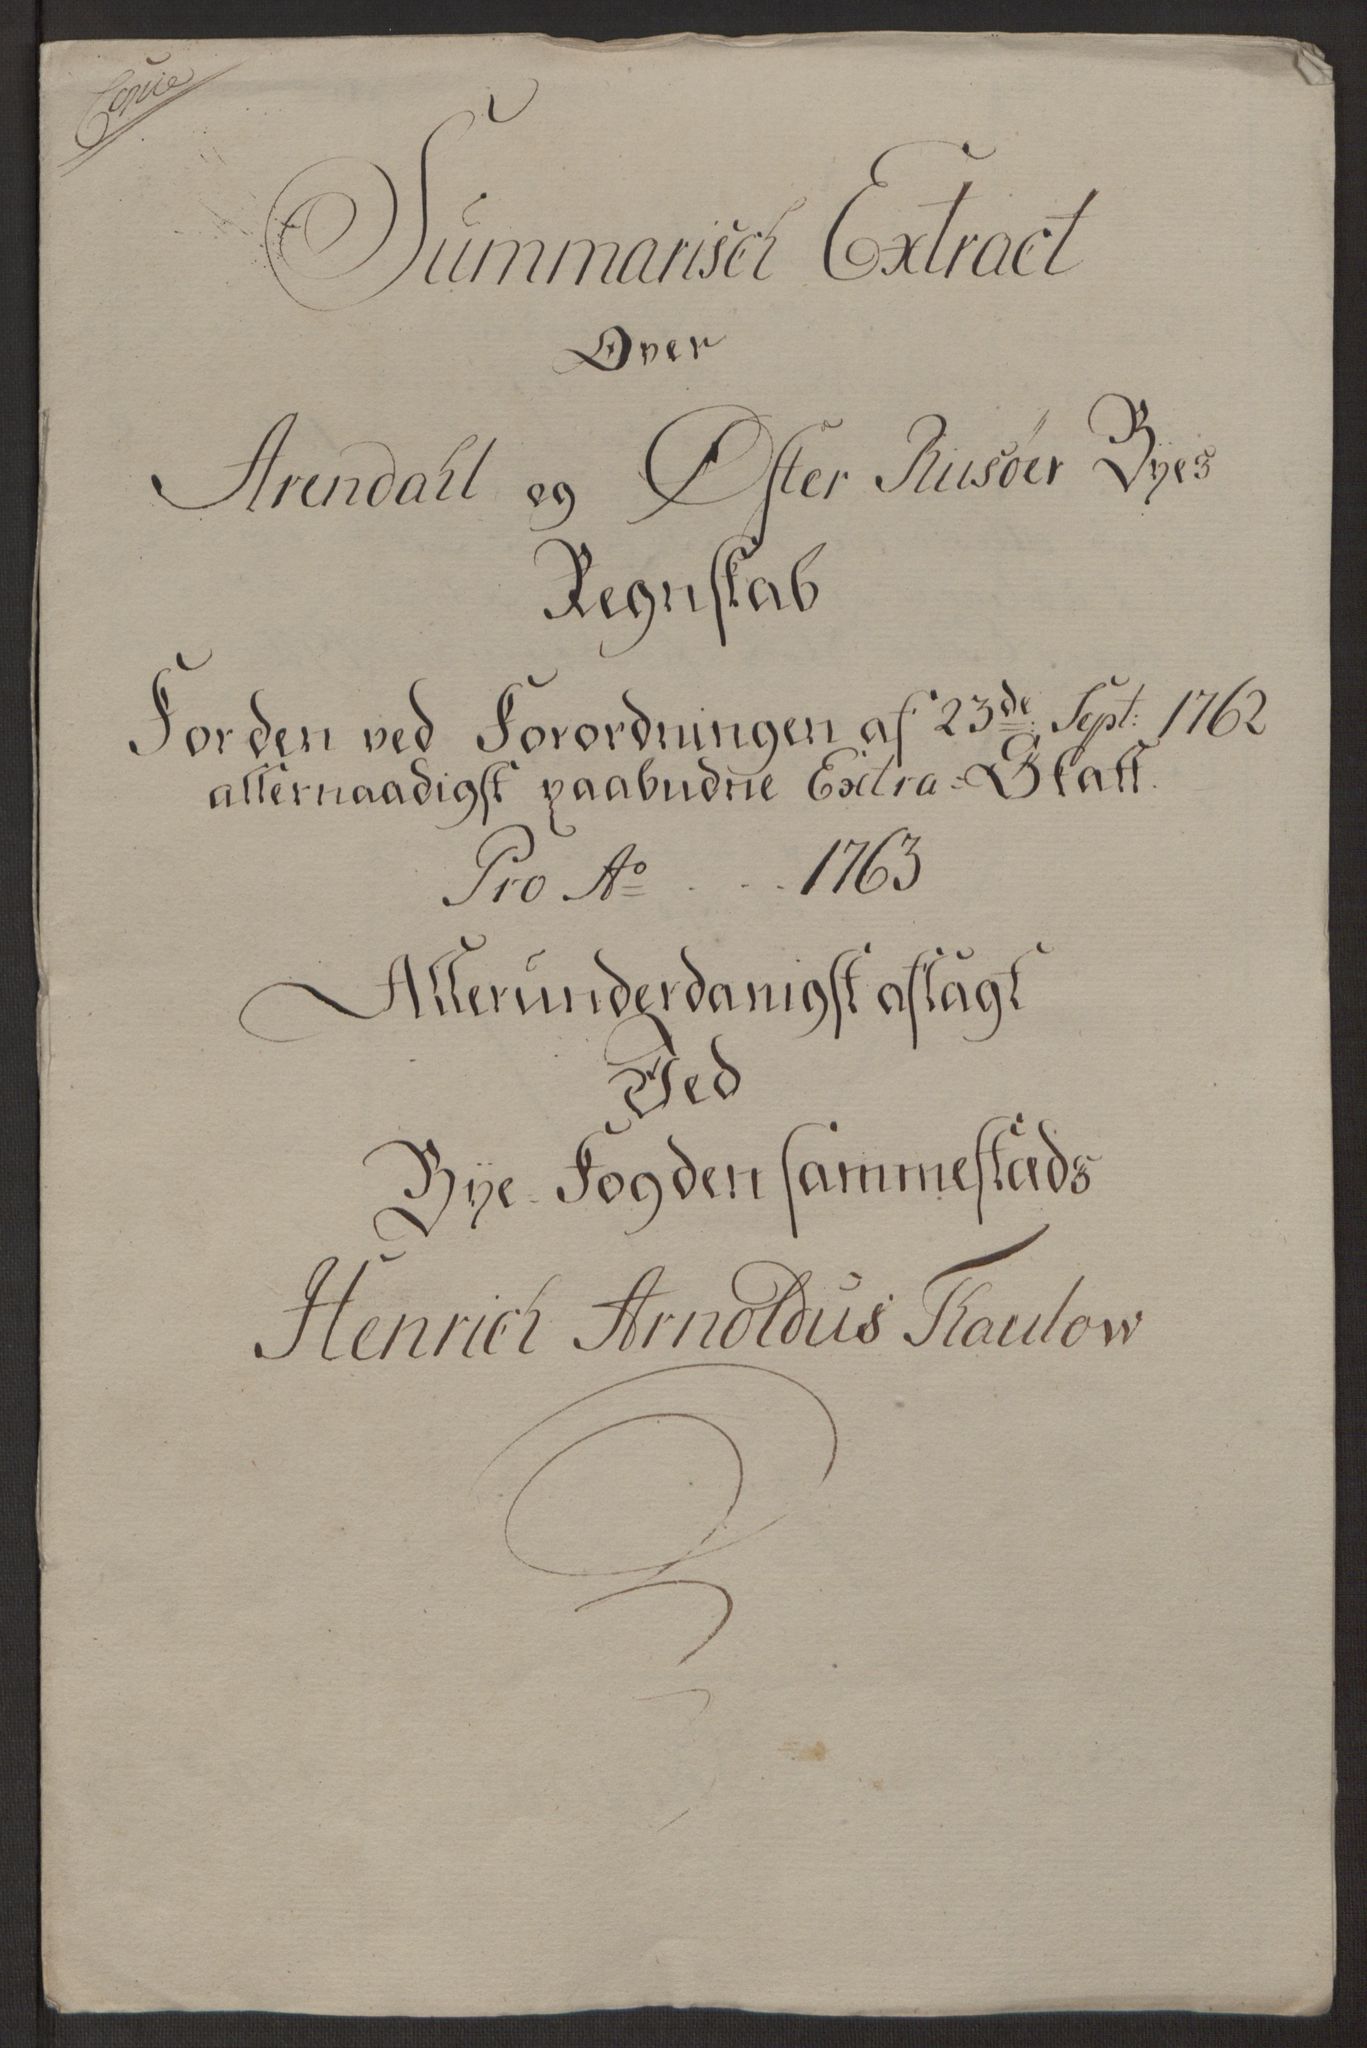 Copie
Summarisch Extract
Over
Arendahl og Øster Riisöer Byes
Regnskab
For den ved Forordningen af 23de Sept: 1762
allernaadigst paabudne Extra-Skatt.
Pro Ao ... 1763
Allerunderdanigst aflagt
Ved
Bye-Fogden sammestæds
Henrich Arnoldus Thaulow